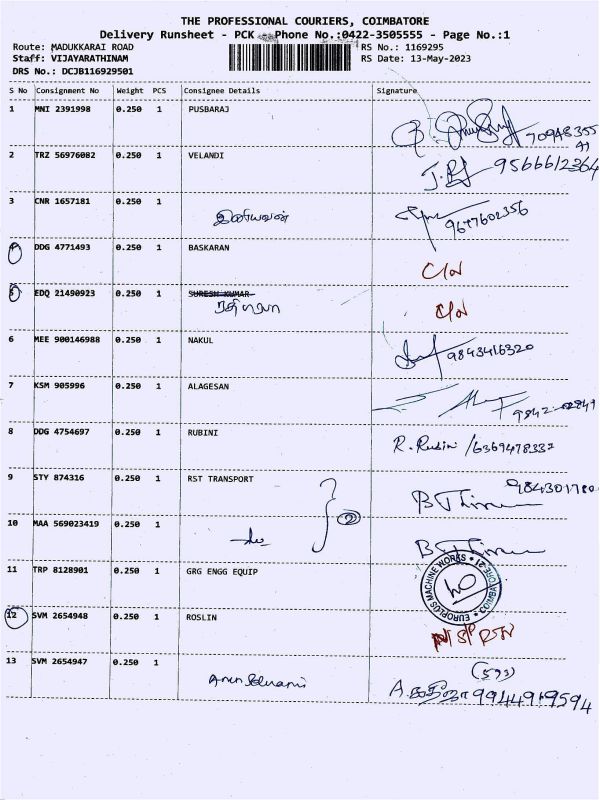 THE PROFESSIONAL COURIERS, COIMBATORE
Delivery Runsheet - PCK Phone No.:0422-3505555 - Page No.:1
Route: MADUKKARAI ROAD RS No.: 1169295
Staff: VIJAYARATHINAM RS Date: 13-May-2023
DRS No.: DCJB116929501
S No Consignment No Weight PCS Consignee Details Signature
1 MNI 2391998 0.250 1 PUSBARAJ
2 TRZ 56976082 0.250 1 VELANDI 9566612364
3 CNR 1657181 0.250 1 இனியவன் 9677602356
4 DDG 4771493 0.250 1 BASKARAN
5 EDQ 21490923 0.250 1 SURESH KUMAR
6 MEE 900146988 0.250 1 NAKUL 9843416320
7 KSM 905996 0.250 1 ALAGESAN
8 DDG 4754697 0.250 1 RUBINI R. Rubini /6369478337
9 STY 874316 0.250 1 RST TRANSPORT
10 MAA 569023419 0.250 1 2
11 TRP 8128901 0.250 1 GRG ENGG EQUIP
EUROPLUS MACHINE WORKS
12 SVM 2654948 0.250 1 ROSLIN
13 SVM 2654947 0.250 1 (593)
9944919594